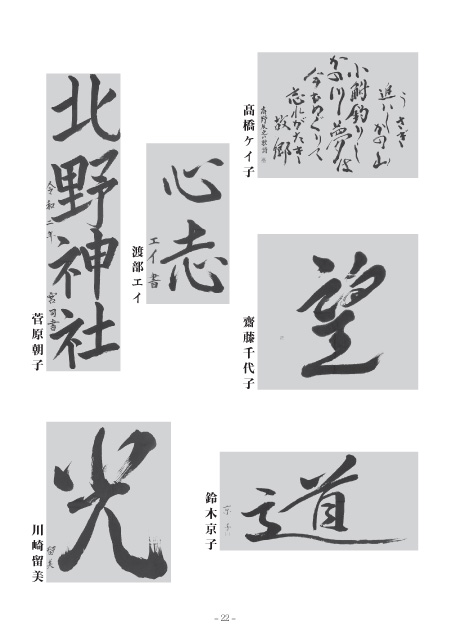 うさぎ
追いしかの山
小鮒釣りし
かの川夢は
今もめぐりて
忘れがたき
故郷
高野辰之の歌詞
髙橋ケイ子
北野神社
令和二年
宮司書
菅原朝子
心志
エイ書
渡部エイ
望
齋藤千代子
光
留美
川崎留美
道
京子
鈴木京子
– 22 –